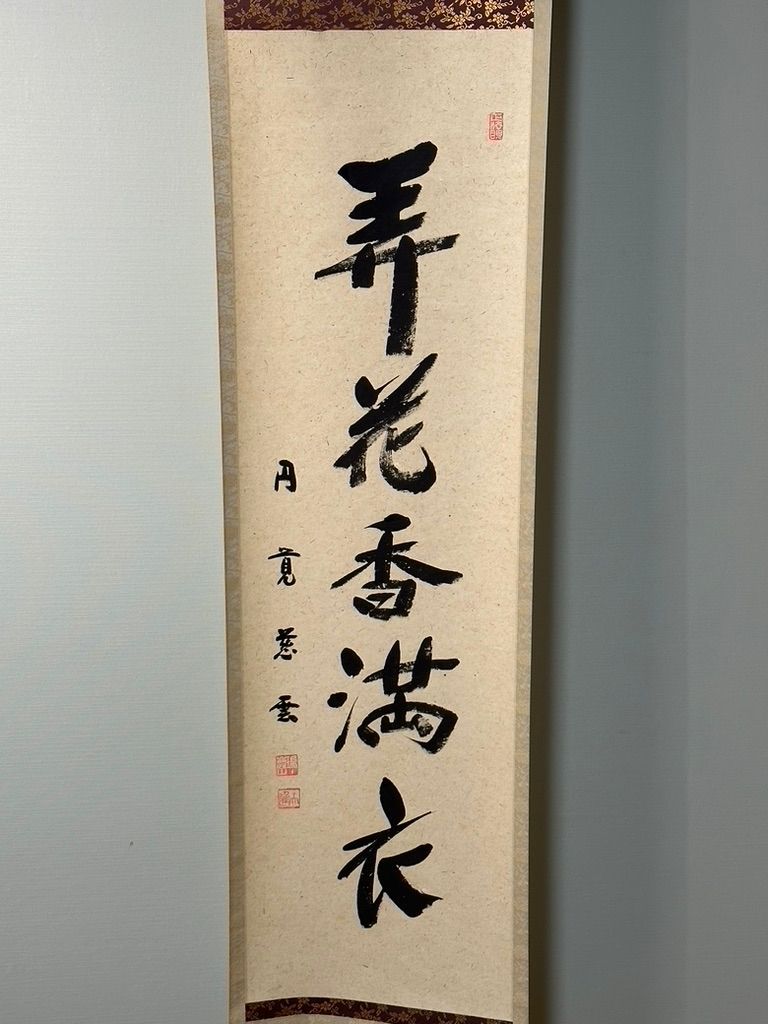 弄花香満衣
円覚慈雲